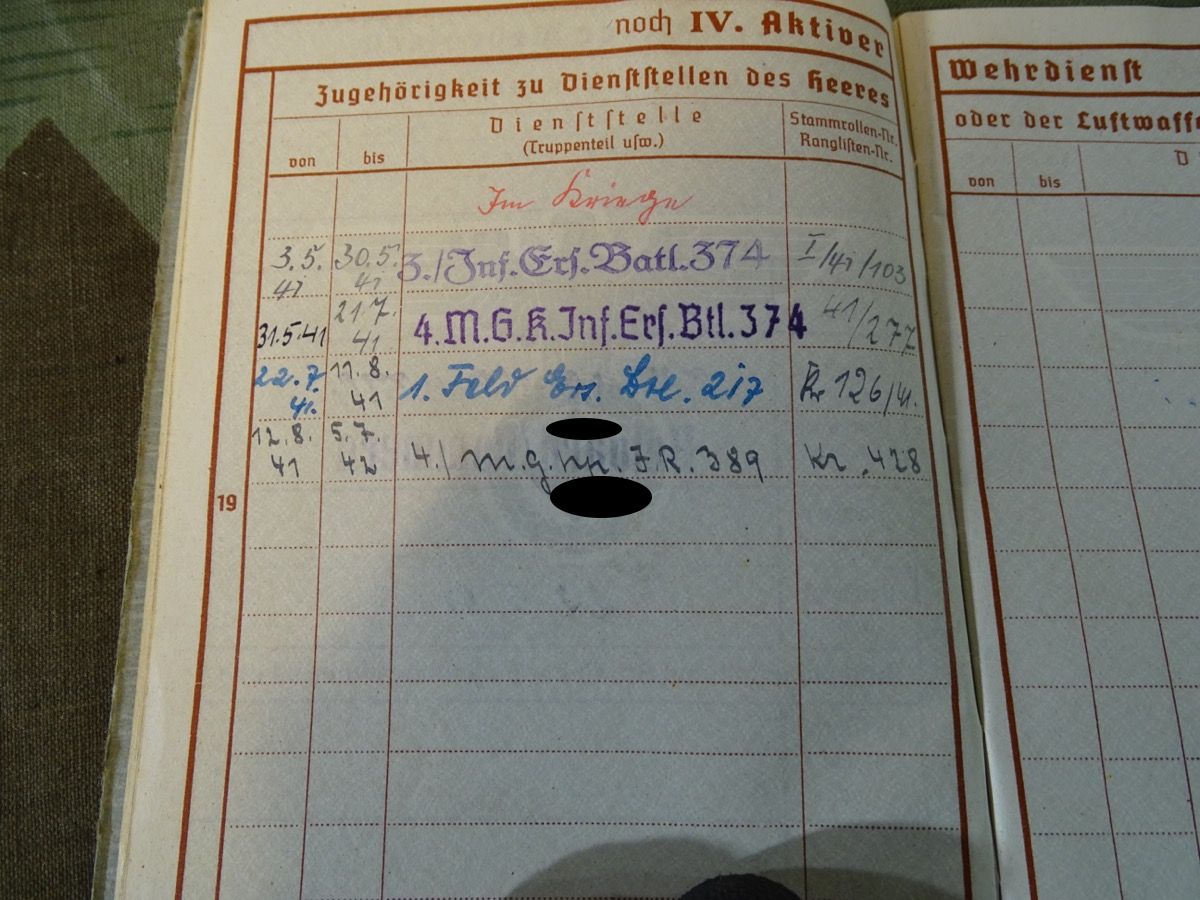 noch IV. Aktiver
Zugehörigkeit zu Dienststellen des Heeres
von
bis
Dienststelle
(Truppenteil usw.)
Stammrollen-Nr.
Ranglisten-Nr.
Im Kriege
3.5. 41
30.5. 41
3./Inf.Ers.Batl.374
I/41/103
31.5.41
21.7. 41
4.M.G.K.Inf.Ers.Btl.374
41/277
22.7. 41.
11.8. 41
1. Feld Ers. Btl. 217
Kr 126/41.
12.8. 41
5.7. 42
4./ J.R. 389
Kr. 428
19
Wehrdienst
oder der Luftwaffe
von
bis
D